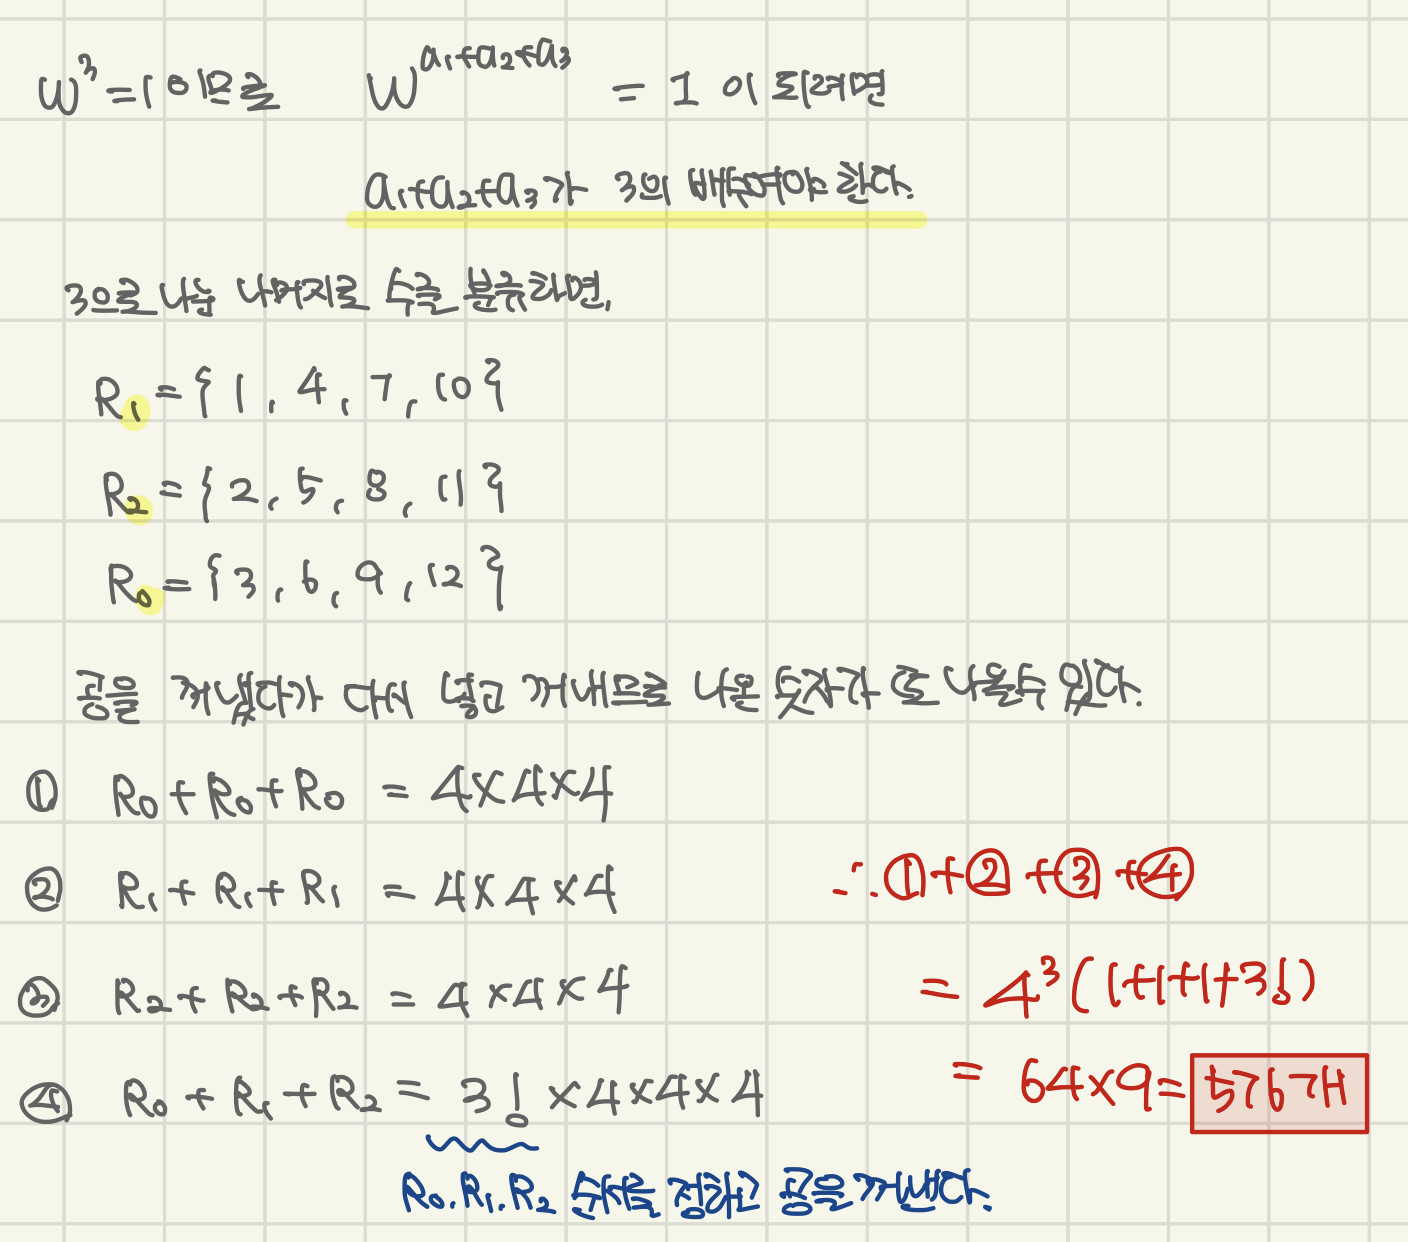 w³=1 이므로 w^(a₁+a₂+a₃) = 1 이 되려면
a₁+a₂+a₃가 3의 배수여야 한다.
3으로 나눈 나머지로 수를 분류하면,
R₁ = { 1, 4, 7, 10 }
R₂ = { 2, 5, 8, 11 }
R₀ = { 3, 6, 9, 12 }
공을 꺼냈다가 다시 넣고 꺼내므로 나온 숫자가 또 나올수 있다.
① R₀ + R₀ + R₀ = 4×4×4
② R₁ + R₁ + R₁ = 4×4×4
③ R₂ + R₂ + R₂ = 4×4×4
④ R₀ + R₁ + R₂ = 3! ×4×4×4
R₀, R₁, R₂ 순서를 정하고 공을 꺼낸다.
∴ ①+②+③+④
= 4³ (1+1+1+3!)
= 64×9 = 576개